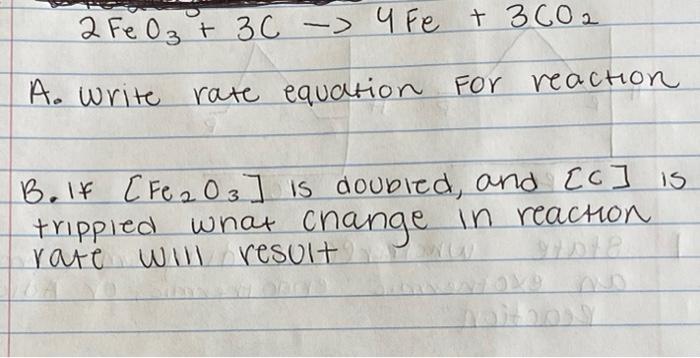 2 Fe O₃ + 3C -> 4 Fe + 3CO₂
A. Write rate equation For reaction
B. If [Fe₂O₃] is doubled, and [C] is
trippled what change in reaction
rate will result